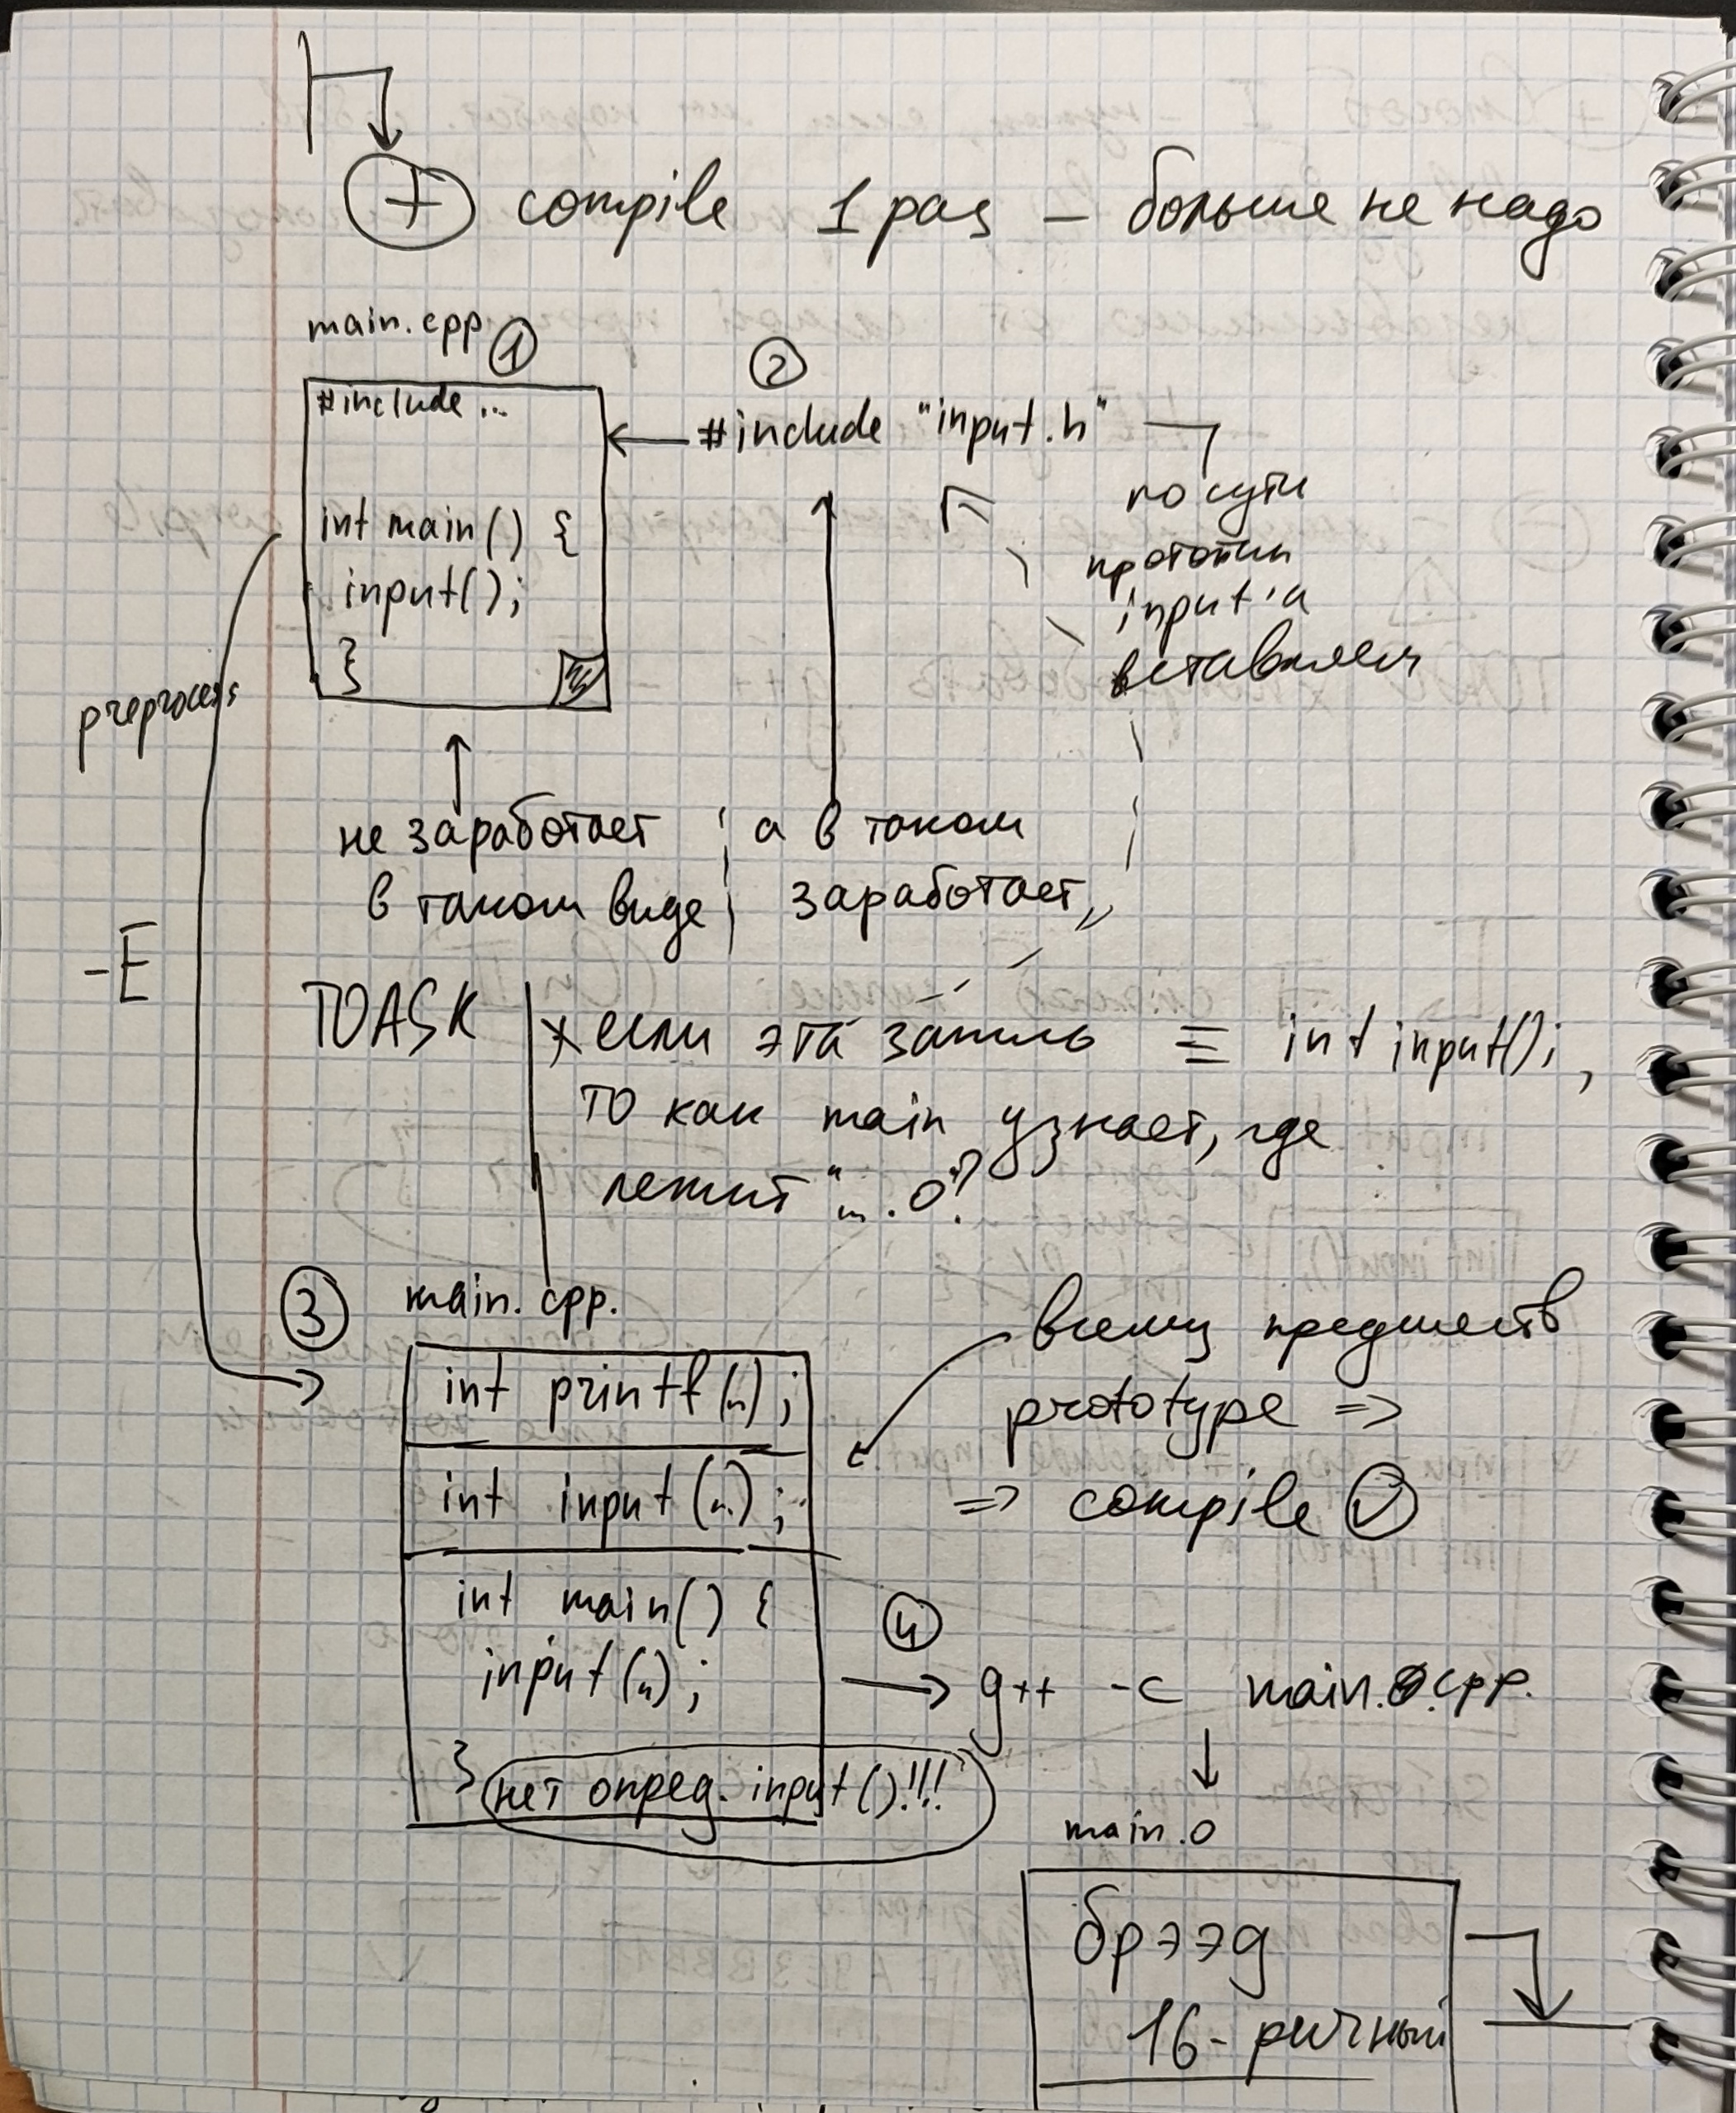 + compile 1 раз – больше не надо
main.cpp ①
#include ...
int main() {
input();
}
②
#include "input.h"
по сути
прототип
input'а
вставляем
preprocess
-E
не заработает
в таком виде
а в таком
заработает
TOASK
* если эта запись ≡ int input();,
то как main узнает, где
лежит "... .o"?
③ main.cpp.
int printf(...);
int input(...);
int main() {
input(...);
}
нет опред. input()!!!
всему предшеств
prototype =>
=> compile ✓
④
→ g++ -c main.cpp.
main.o
брээд
16-ричный